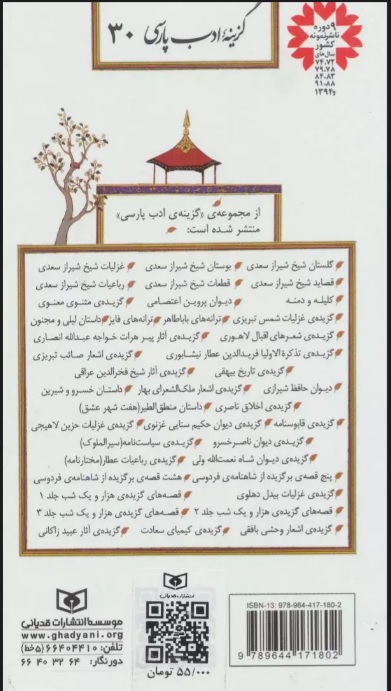 گزینهٔ ادب پارسی ۳۰
۹ دوره
ناشر نمونه
کشور
سال‌های
۷۴،۷۲
۷۹،۷۸
۸۴،۸۳
۹۱،۸۸
از مجموعه‌ی «گزینه‌ی ادب پارسی»
منتشر شده است:
گلستان شیخ شیراز سعدی بوستان شیخ شیراز سعدی غزلیات شیخ شیراز سعدی
قصاید شیخ شیراز سعدی قطعات شیخ شیراز سعدی رباعیات شیخ شیراز سعدی
کلیله و دمنه دیوان پروین اعتصامی گزیده‌ی مثنوی معنوی
گزیده‌ی غزلیات شمس تبریزی ترانه‌های باباطاهر ترانه‌های فایز داستان لیلی و مجنون
گزیده‌ی شعرهای اقبال لاهوری گزیده‌ی آثار پیر هرات خواجه عبدالله انصاری
گزیده‌ی تذکرة‌الاولیا فریدالدین عطار نیشابوری گزیده‌ی اشعار صائب تبریزی
گزیده‌ی تاریخ بیهقی گزیده‌ی آثار شیخ فخرالدین عراقی
دیوان حافظ شیرازی گزیده‌ی اشعار ملک‌الشعرای بهار داستان خسرو و شیرین
گزیده‌ی اخلاق ناصری داستان منطق‌الطیر(هفت شهر عشق)
گزیده‌ی قابوسنامه گزیده‌ی دیوان حکیم سنایی غزنوی گزیده‌ی غزلیات حزین لاهیجی
گزیده‌ی دیوان ناصرخسرو گزیده‌ی سیاست‌نامه(سیرالملوک)
گزیده‌ی دیوان شاه نعمت‌الله ولی گزیده‌ی رباعیات عطار(مختارنامه)
پنج قصه‌ی برگزیده از شاهنامه‌ی فردوسی هشت قصه‌ی برگزیده از شاهنامه‌ی فردوسی
گزیده‌ی غزلیات بیدل دهلوی قصه‌های گزیده‌ی هزار و یک شب جلد ۱
قصه‌های گزیده‌ی هزار و یک شب جلد ۲ قصه‌های گزیده‌ی هزار و یک شب جلد ۳
گزیده‌ی اشعار وحشی بافقی گزیده‌ی کیمیای سعادت گزیده‌ی آثار عبید زاکانی
موسسه انتشارات قدیانی
www.ghadyani.org
تلفن: ۶۶۴۰۴۴۱۰ (۵خط)
دورنگار: ۶۶۴۰۳۲۶۴
انتشارات قدیانی
۵۵/۰۰۰ تومان
ISBN-13: 978-964-417-180-2
9 789644 171802